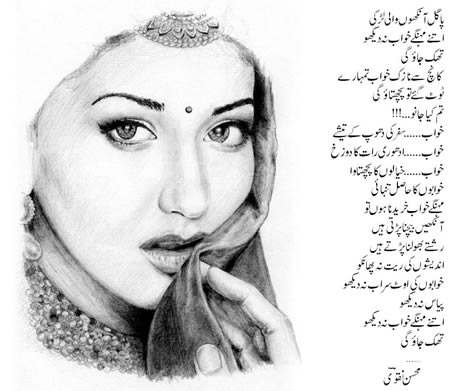 پاگل آنکھوں والی لڑکی
اتنے مہنگے خواب نہ دیکھو
تھک جاؤ گی
کانچ سے نازک خواب تمہارے
ٹوٹ گئے تو پچھتاؤ گی
تم کیا جانو...!!!
خواب......سفر کی دھوپ کے تیشے
خواب......ادھوری رات کا دوزخ
خواب......خیالوں کا پچھتاوا
خوابوں کا حاصل تنہائی
مہنگے خواب خریدنا ہوں تو
آنکھیں بیچنا پڑتی ہیں
رشتے بھولنا پڑتے ہیں
اندیشوں کی ریت نہ پھانکو
خوابوں کی اوٹ سراب نہ دیکھو
پیاس نہ دیکھو
اتنے مہنگے خواب نہ دیکھو
تھک جاؤ گی
......
محسن نقوی